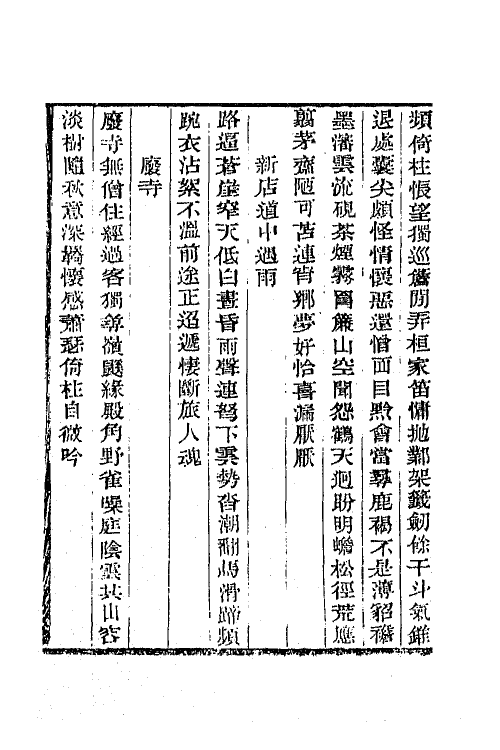 頻倚柱悵望獨巡簷閒弄桓家笛慵拋鄴架籤劒餘干斗氣錐
退處囊尖頗怪情懷惡還憎面目黔會當尋鹿褐不是薄貂襜
墨瀋雲流硯茶煙霧罥簾山空聞怨鶴天迥盼明蟾松徑荒應
翦茅齋陋可苫連宵鄉夢好恰喜漏厭厭
新店道中遇雨
路逼蒼崖窄天低白晝昏雨聲連弩下雲勢沓潮翻馬滑蹄頻
踠衣沾絮不溫前途正迢遞悽斷旅人魂
廢寺
廢寺無僧住經過客獨尋嶺颷緣殿角野雀噪庭陰雲共山容
淡樹隨秋意深羈懷感蕭瑟倚柱自微吟